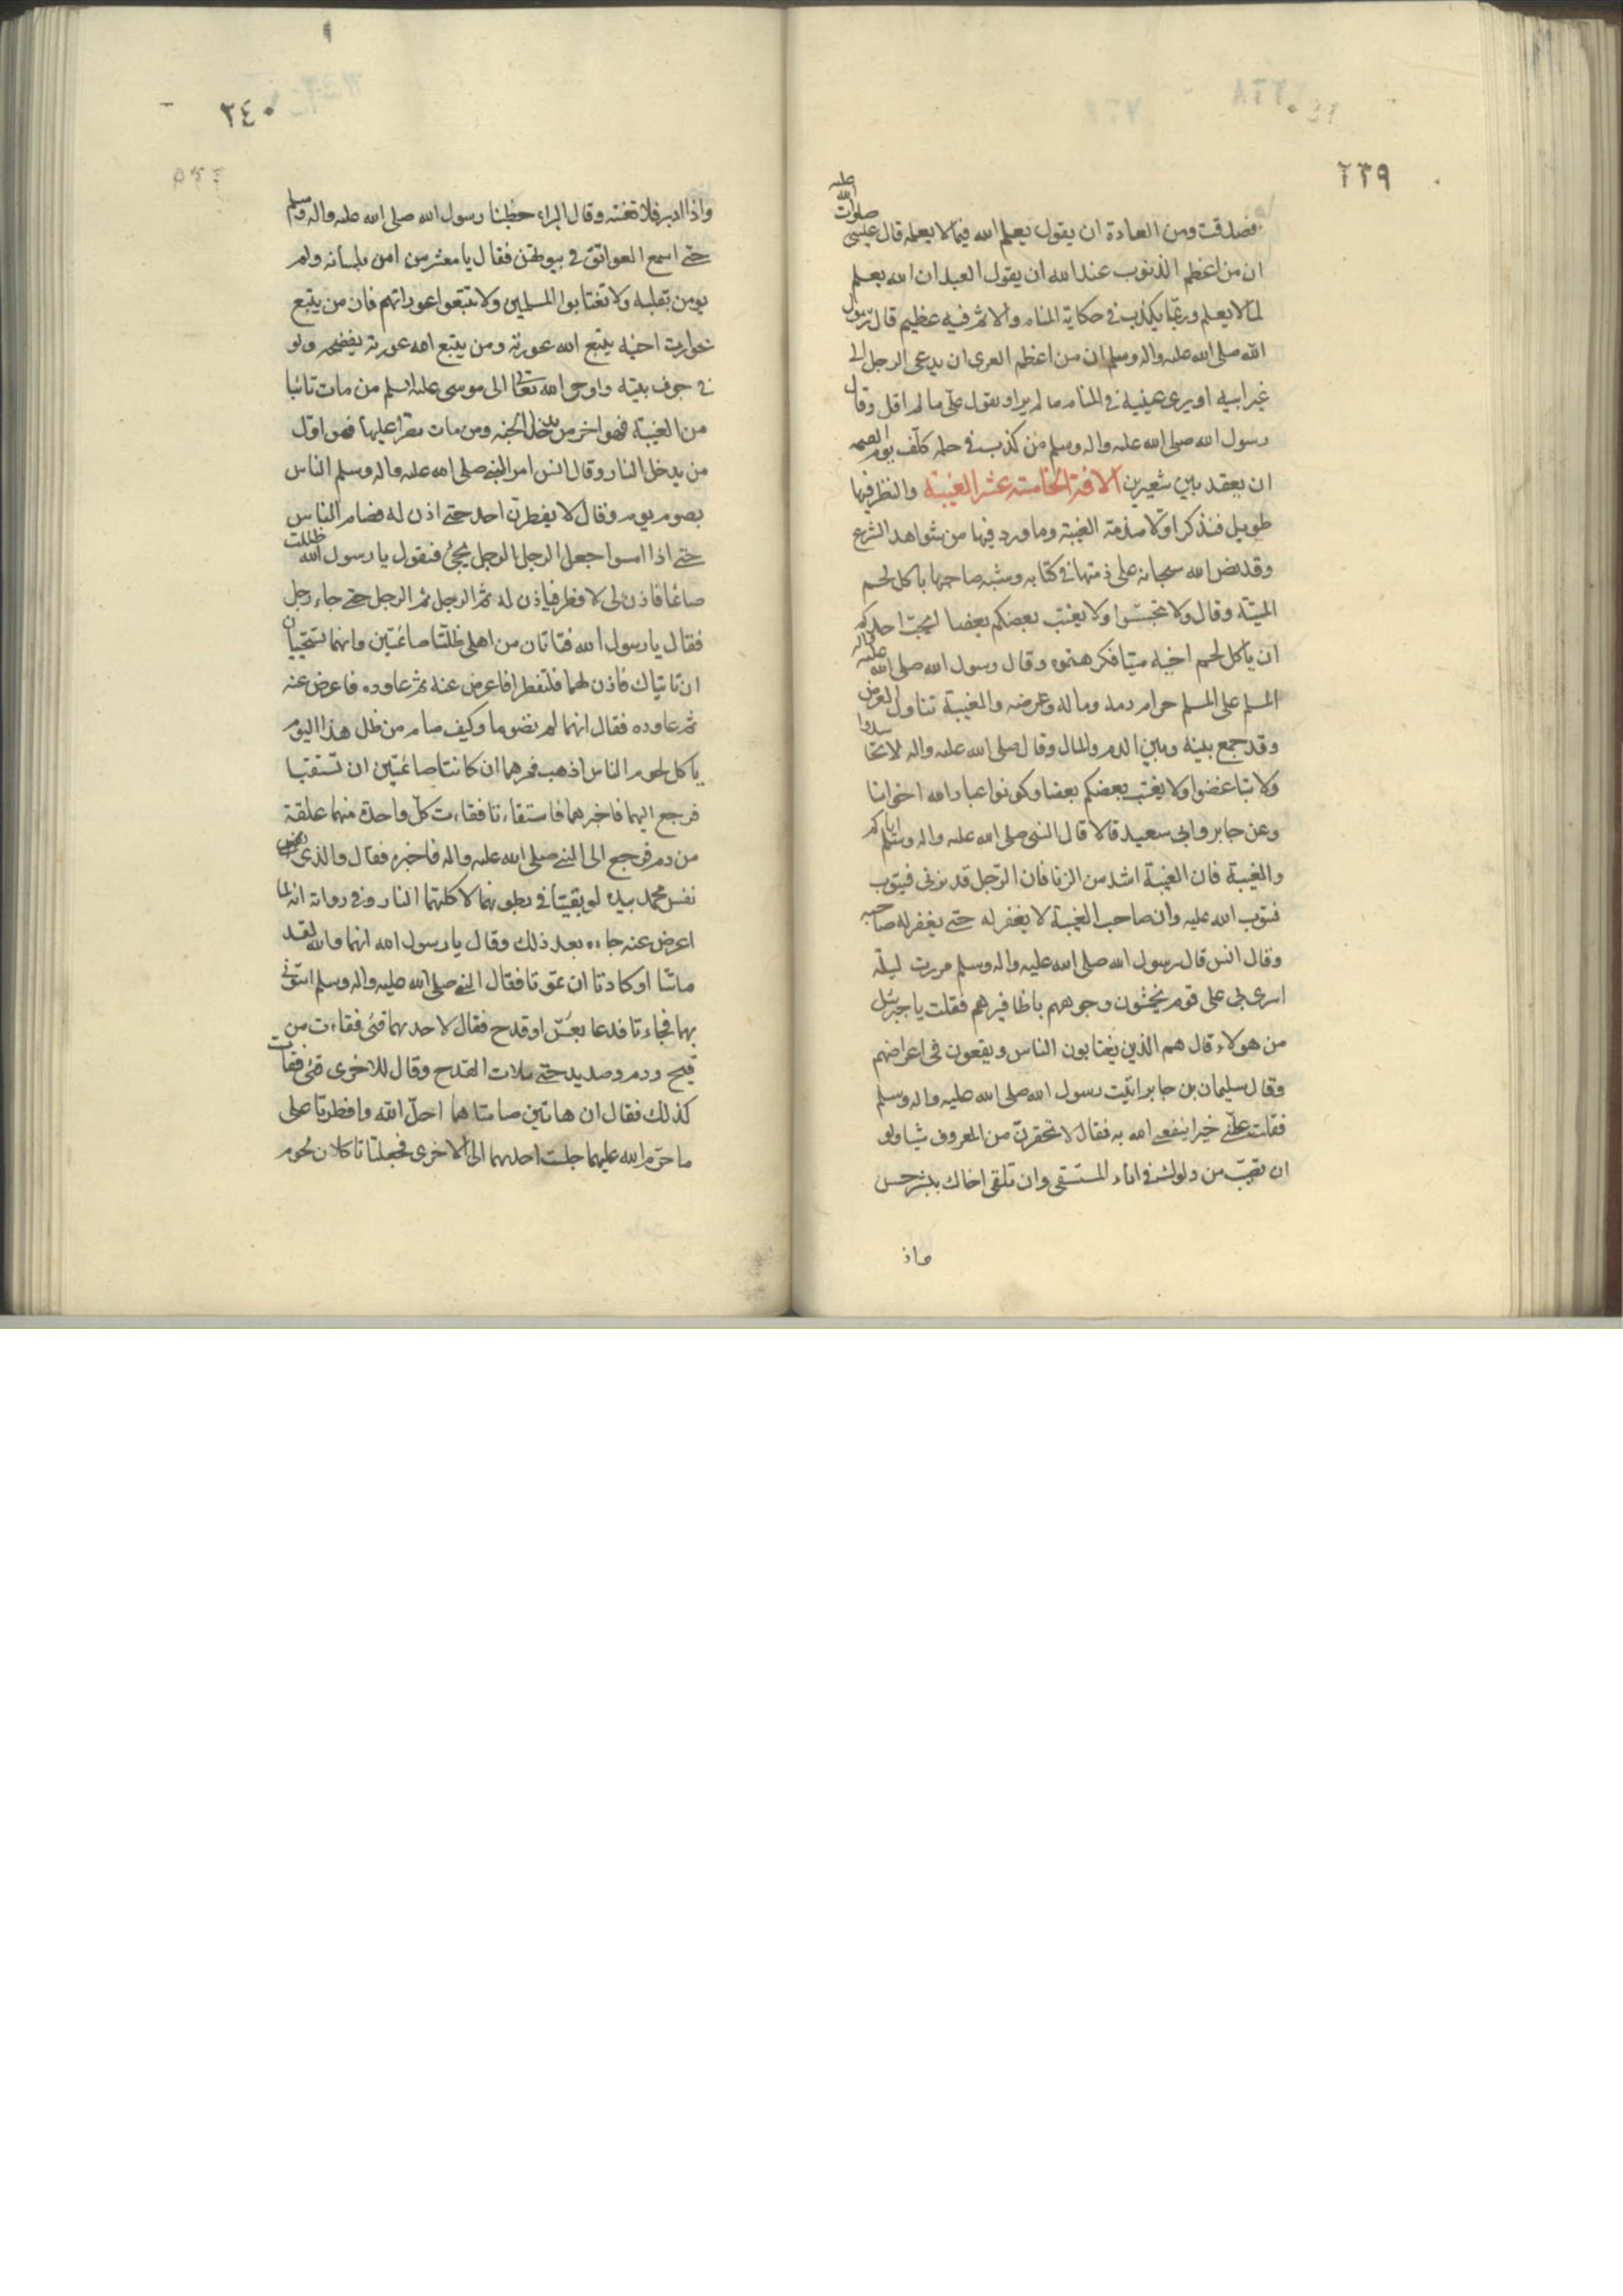 ٢٣٩
فصدقت ومن العادة ان يقول يعلم الله فيما لا يعلمه قال عيسى صلوات الله عليه
ان من اعظم الذنوب عند الله ان يقول العبد ان الله يعلم
لما لا يعلم وربما يكذب في حكاية المنام والاثم فيه عظيم قال رسول
الله صلى الله عليه واله وسلم ان من اعظم الفرى ان يدعى الرجل الى
غير ابيه او يرى عينيه في المنام ما لم ير او يقول علىّ ما لم اقل وقال
رسول الله صلى الله عليه واله وسلم من كذب في حلمه كلف يوم القيمه
ان يعقد بين شعيرين الافة الخامسة عشر الغيبة والنظر فيها
طويل فنذكر اوّلا مذمة الغيبة وما ورد فيها من شواهد الشرع
وقد نص الله سبحانه على ذمها في كتابه وشبه صاحبها باكل لحم
الميتة وقال ولا تجسّسوا ولا يغتب بعضكم بعضا ايحبّ احدكم
ان ياكل لحم اخيه ميتا فكرهتموه وقال رسول الله صلى الله عليه واله
المسلم على المسلم حرام دمه وماله وعرضه والغيبة تناول العرض
وقد جمع بينه وبين الدم والمال وقال صلى الله عليه واله لا تحاسدوا
ولا تباغضوا ولا يغتب بعضكم بعضا وكونوا عباد الله اخوانا
وعن جابر وابى سعيد قالا قال النبى صلى الله عليه واله وسلم اياكم
والغيبة فان الغيبة اشد من الزنا فان الرّجل قد يزنى فيتوب
فيتوب الله عليه وان صاحب الغيبة لا يغفر له حتى يغفر له صاحبه
وقال انس قال رسول الله صلى الله عليه واله وسلم مررت ليلة
اسرى بى على قوم يخمشون وجوههم باظافيرهم فقلت يا جبرئيل
من هولاء قال هم الذين يغتابون الناس ويقعون فى اعراضهم
وقال سليمان بن جابر اتيت رسول الله صلى الله عليه واله وسلم
فقلت علّمنى خيرا ينفعنى الله به فقال لا تحقرنّ من المعروف شيا ولو
ان تصبّ من دلوك في اناء المستقى وان تلقى اخاك ببشر حسن
واذ
٢٤٠
واذا ادبر فلا تغتبه وقال البراء خطبنا رسول الله صلى الله عليه واله وسلم
حتى اسمع العواتق في بيوتهن فقال يا معشر من امن بلسانه ولم
يومن بقلبه ولا تغتابوا المسلمين ولا تتبعوا عوراتهم فان من يتبع
عورات اخيه يتبع الله عورته ومن يتبع الله عورته يفضحه ولو
في جوف بيته واوحى الله تعالى الى موسى عليه السلم من مات تائبا
من الغيبة فهو اخر من يدخل الجنه ومن مات مصرا عليها فهو اوّل
من يدخل النار وقال انس امر النبى صلى الله عليه واله وسلم الناس
بصوم يوم وقال لا يفطرنّ احد حتى اذن له فصام الناس
حتى اذا امسوا جعل الرجل الرجل يجئ فيقول يا رسول الله ظللت
صائما فاذن لى لافطر فياذن له ثم الرجل ثم الرجل حتى جاء رجل
فقال يا رسول الله فتاتان من اهلى ظلتا صائمتين وانهما تستحييان
ان تاتياك فاذن لهما فلتفطرا فاعرض عنه ثم عاوده فاعرض عنه
ثم عاوده فقال انهما لم تصوما وكيف صام من ظل هذا اليوم
ياكل لحوم الناس اذهب فمرهما ان كانتا صائمتين ان تستقيا
فرجع اليهما فاخبرهما فاستقاءتا فقاءت كلّ واحدة منهما علقة
من دم فرجع الى النبى صلى الله عليه واله فاخبره فقال والذى
نفس محمد بيده لو بقيتا في بطونهما لاكلتهما النار وفى رواية انه لما
اعرض عنه جاءه بعد ذلك وقال يا رسول الله انهما والله لقد
ماتتا او كادتا ان تموتا فقال النبى صلى الله عليه واله وسلم ايتونى
بهما فجاءتا فدعا بعسّ او قدح فقال لاحدهما قئى فقاءت من
قيح ودم وصديد حتى ملات القدح وقال للاخرى قئى فقاءت
كذلك فقال ان هاتين صامتا عما احلّ الله وافطرتا على
ما حرّم الله عليهما جلست احدهما الى الاخرى فجعلتا تاكلان لحوم